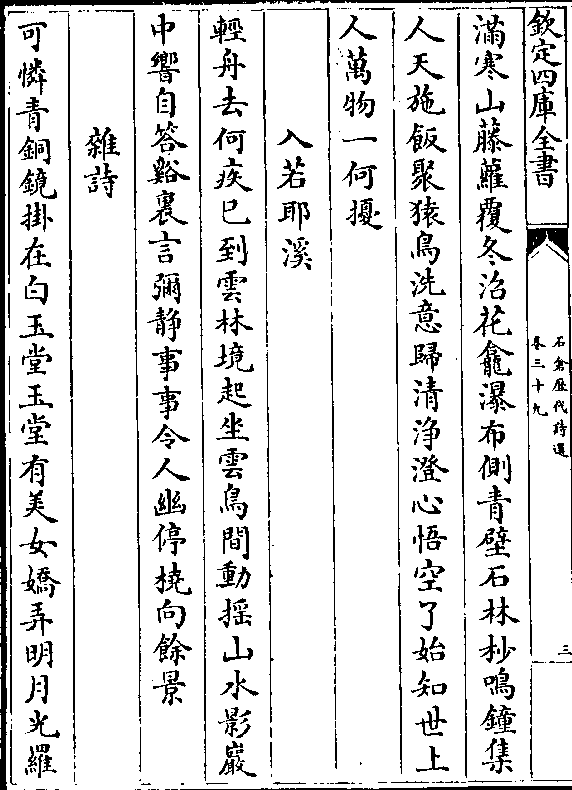 欽定四庫全書
石倉歷代詩選
卷三十九
三
滿寒山藤蘿覆冬沼花龕瀑布側青壁石林杪鳴鐘集
人天施飯聚猿鳥洗意歸清浄澄心悟空了始知世上
人萬物一何擾
入若耶溪
輕舟去何疾已到雲林境起坐雲鳥間動揺山水影巖
中響自答谿裏言彌静事事令人幽停橈向餘景
雜詩
可憐青銅鏡掛在白玉堂玉堂有美女嬌弄明月光羅